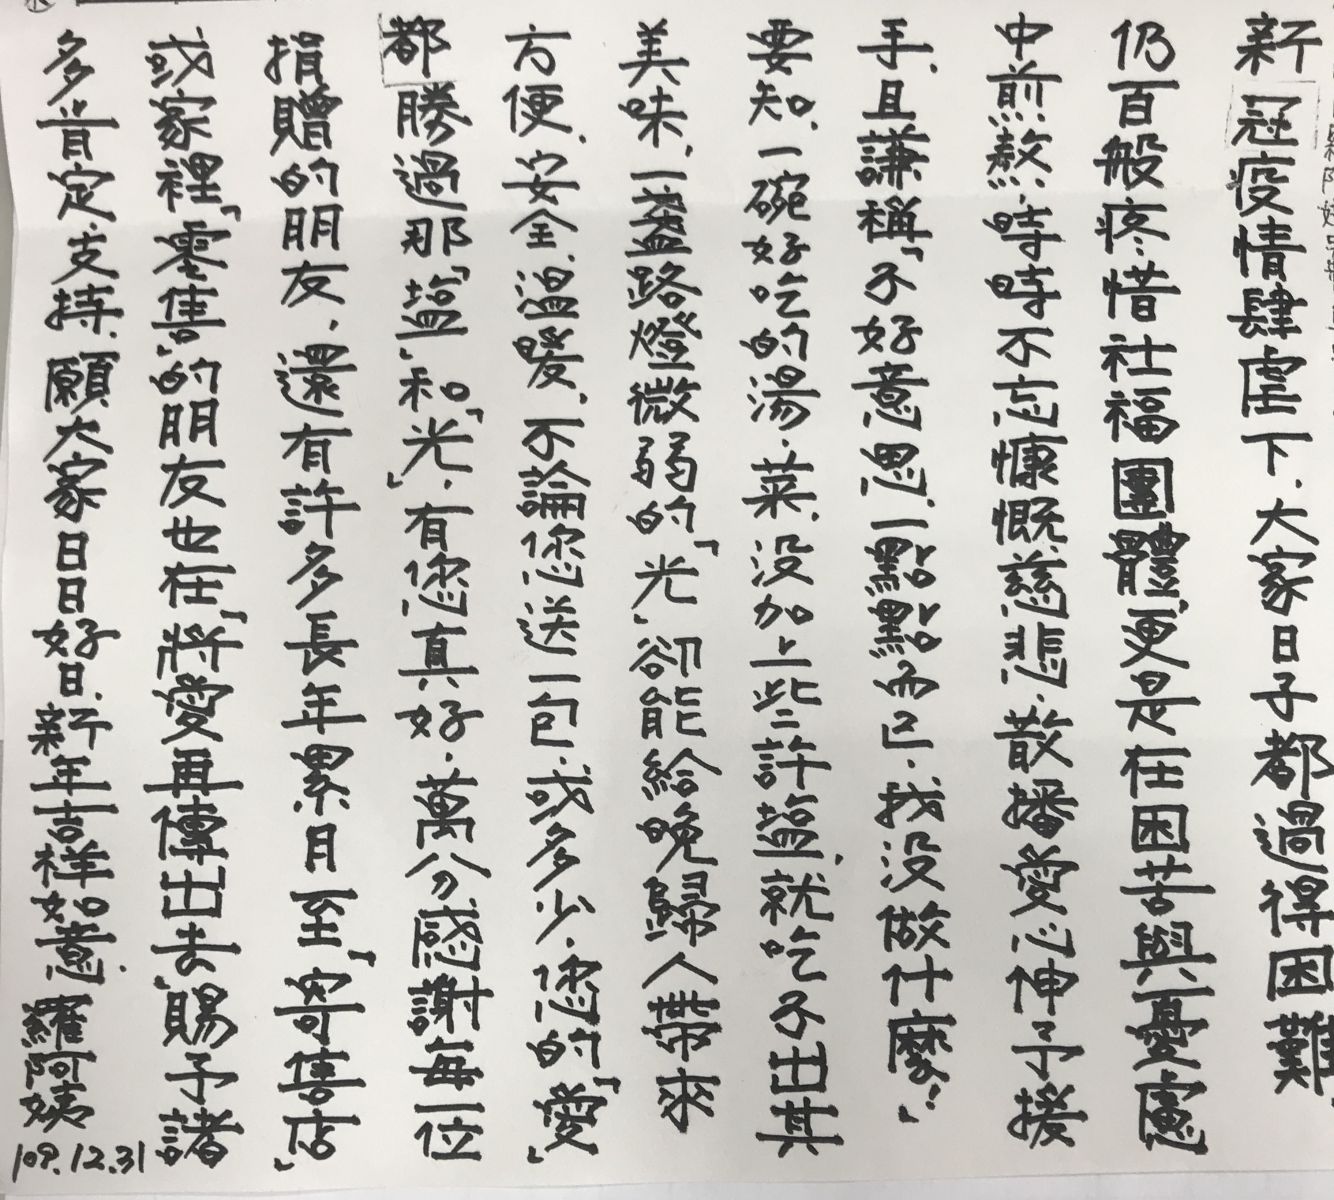 新冠疫情肆虐下、大家日子都過得困難
仍百般疼惜社福團體更是在困苦與憂慮
中煎熬、時時不忘慷慨慈悲、散播愛心伸予援
手、且謙稱「不好意思、一點點而已、我没做什麼！」
要知、一碗好吃的湯、菜、没加上些許塩、就吃不出其
美味、一盞路燈微弱的「光」卻能給晚歸人帶來
方便、安全、溫暖、不論您送一包、或多少、您的「愛」
都勝過那「塩」和「光」、有您真好、萬分感謝每一位
捐贈的朋友、還有許多長年累月至「寄售店」
或家裡「零售」的朋友也在「將愛再傳出去」賜予諸
多肯定、支持、願大家日日好日、新年吉祥如意、羅阿姨
109.12.31